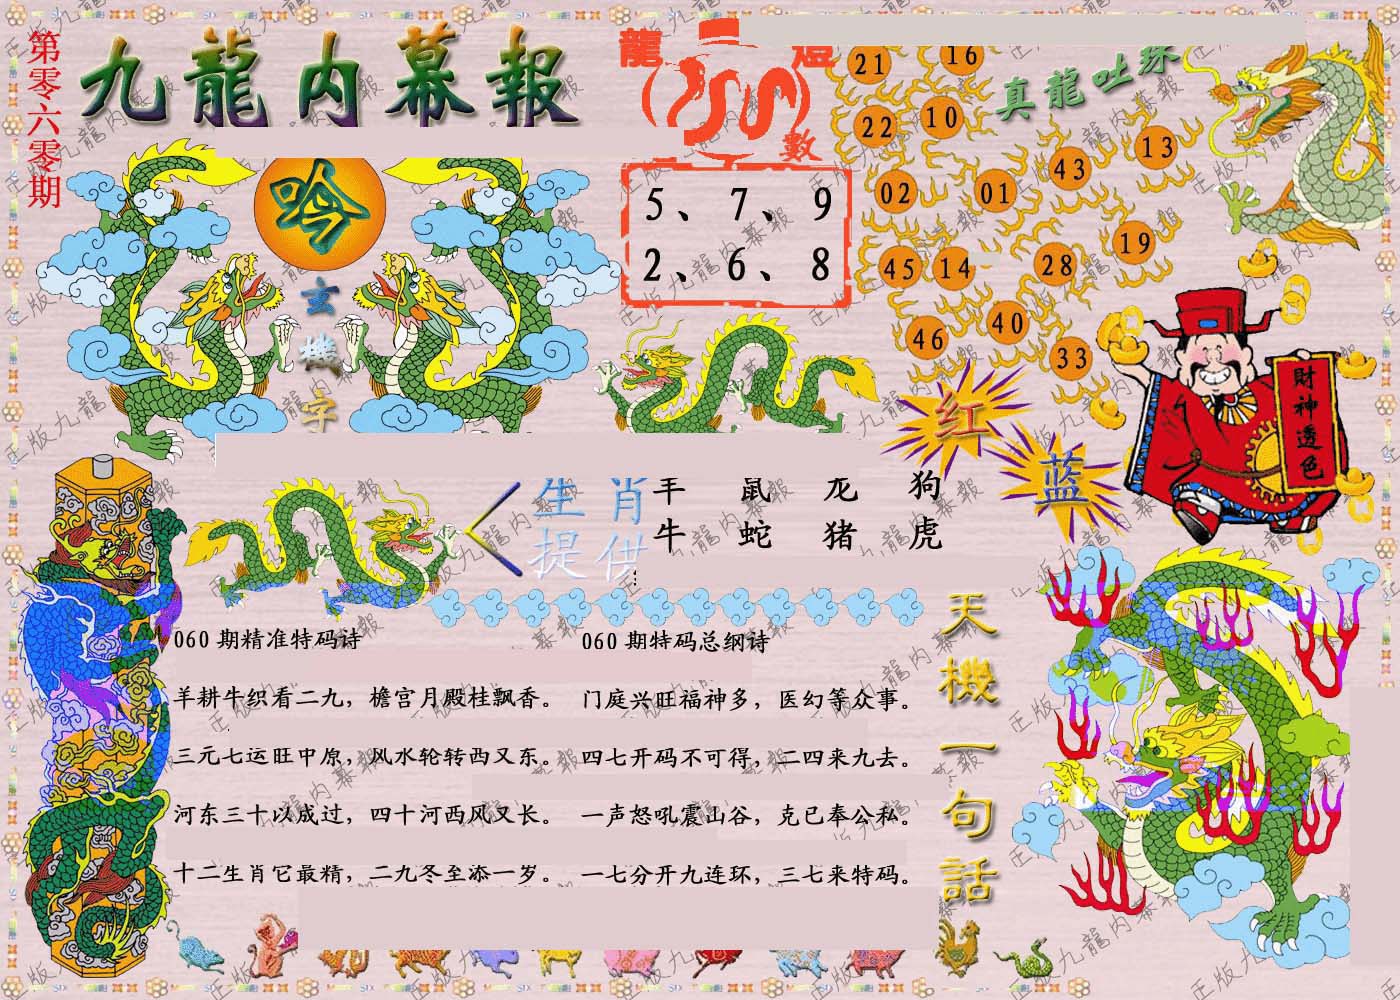 第零六零期
九龍内幕報
龍燈
數
5、7、9
2、6、8
真龍吐珠
21 16
22 10
43 13
02 01
19
45 14 28
46 40
33
玄機字
红
蓝
財神透色
生肖提供
羊 鼠 龙 狗
牛 蛇 猪 虎
060期精准特码诗
羊耕牛织看二九，檐宫月殿桂飘香。
三元七运旺中原，风水轮转西又东。
河东三十以成过，四十河西风又长。
十二生肖它最精，二九冬至添一岁。
060期特码总纲诗
门庭兴旺福神多，医幻等众事。
四七开码不可得，二四来九去。
一声怒吼震山谷，克已奉公私。
一七分开九连环，三七来特码。
天機一句話
正版九龍内幕報